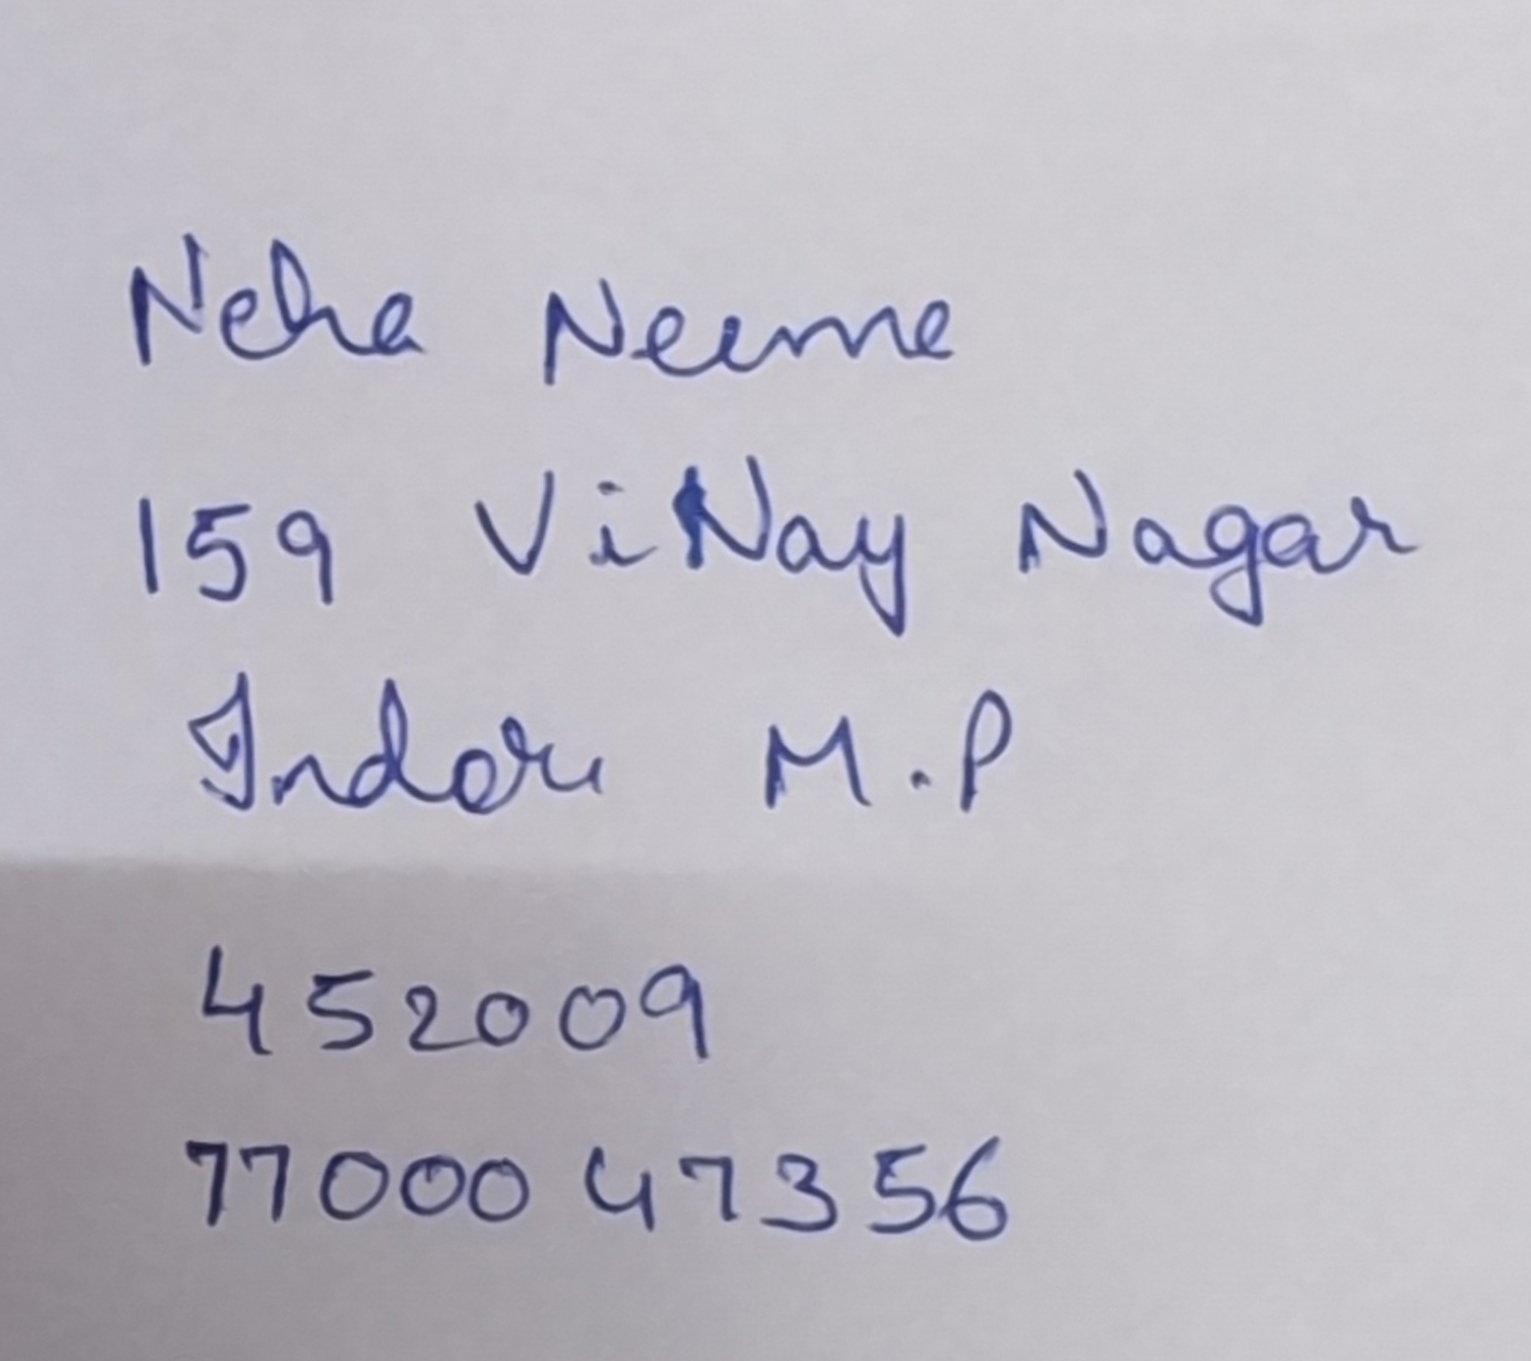 Neha Neeme
159 ViNay Nagar
Indore M.P
452009
77000 47356